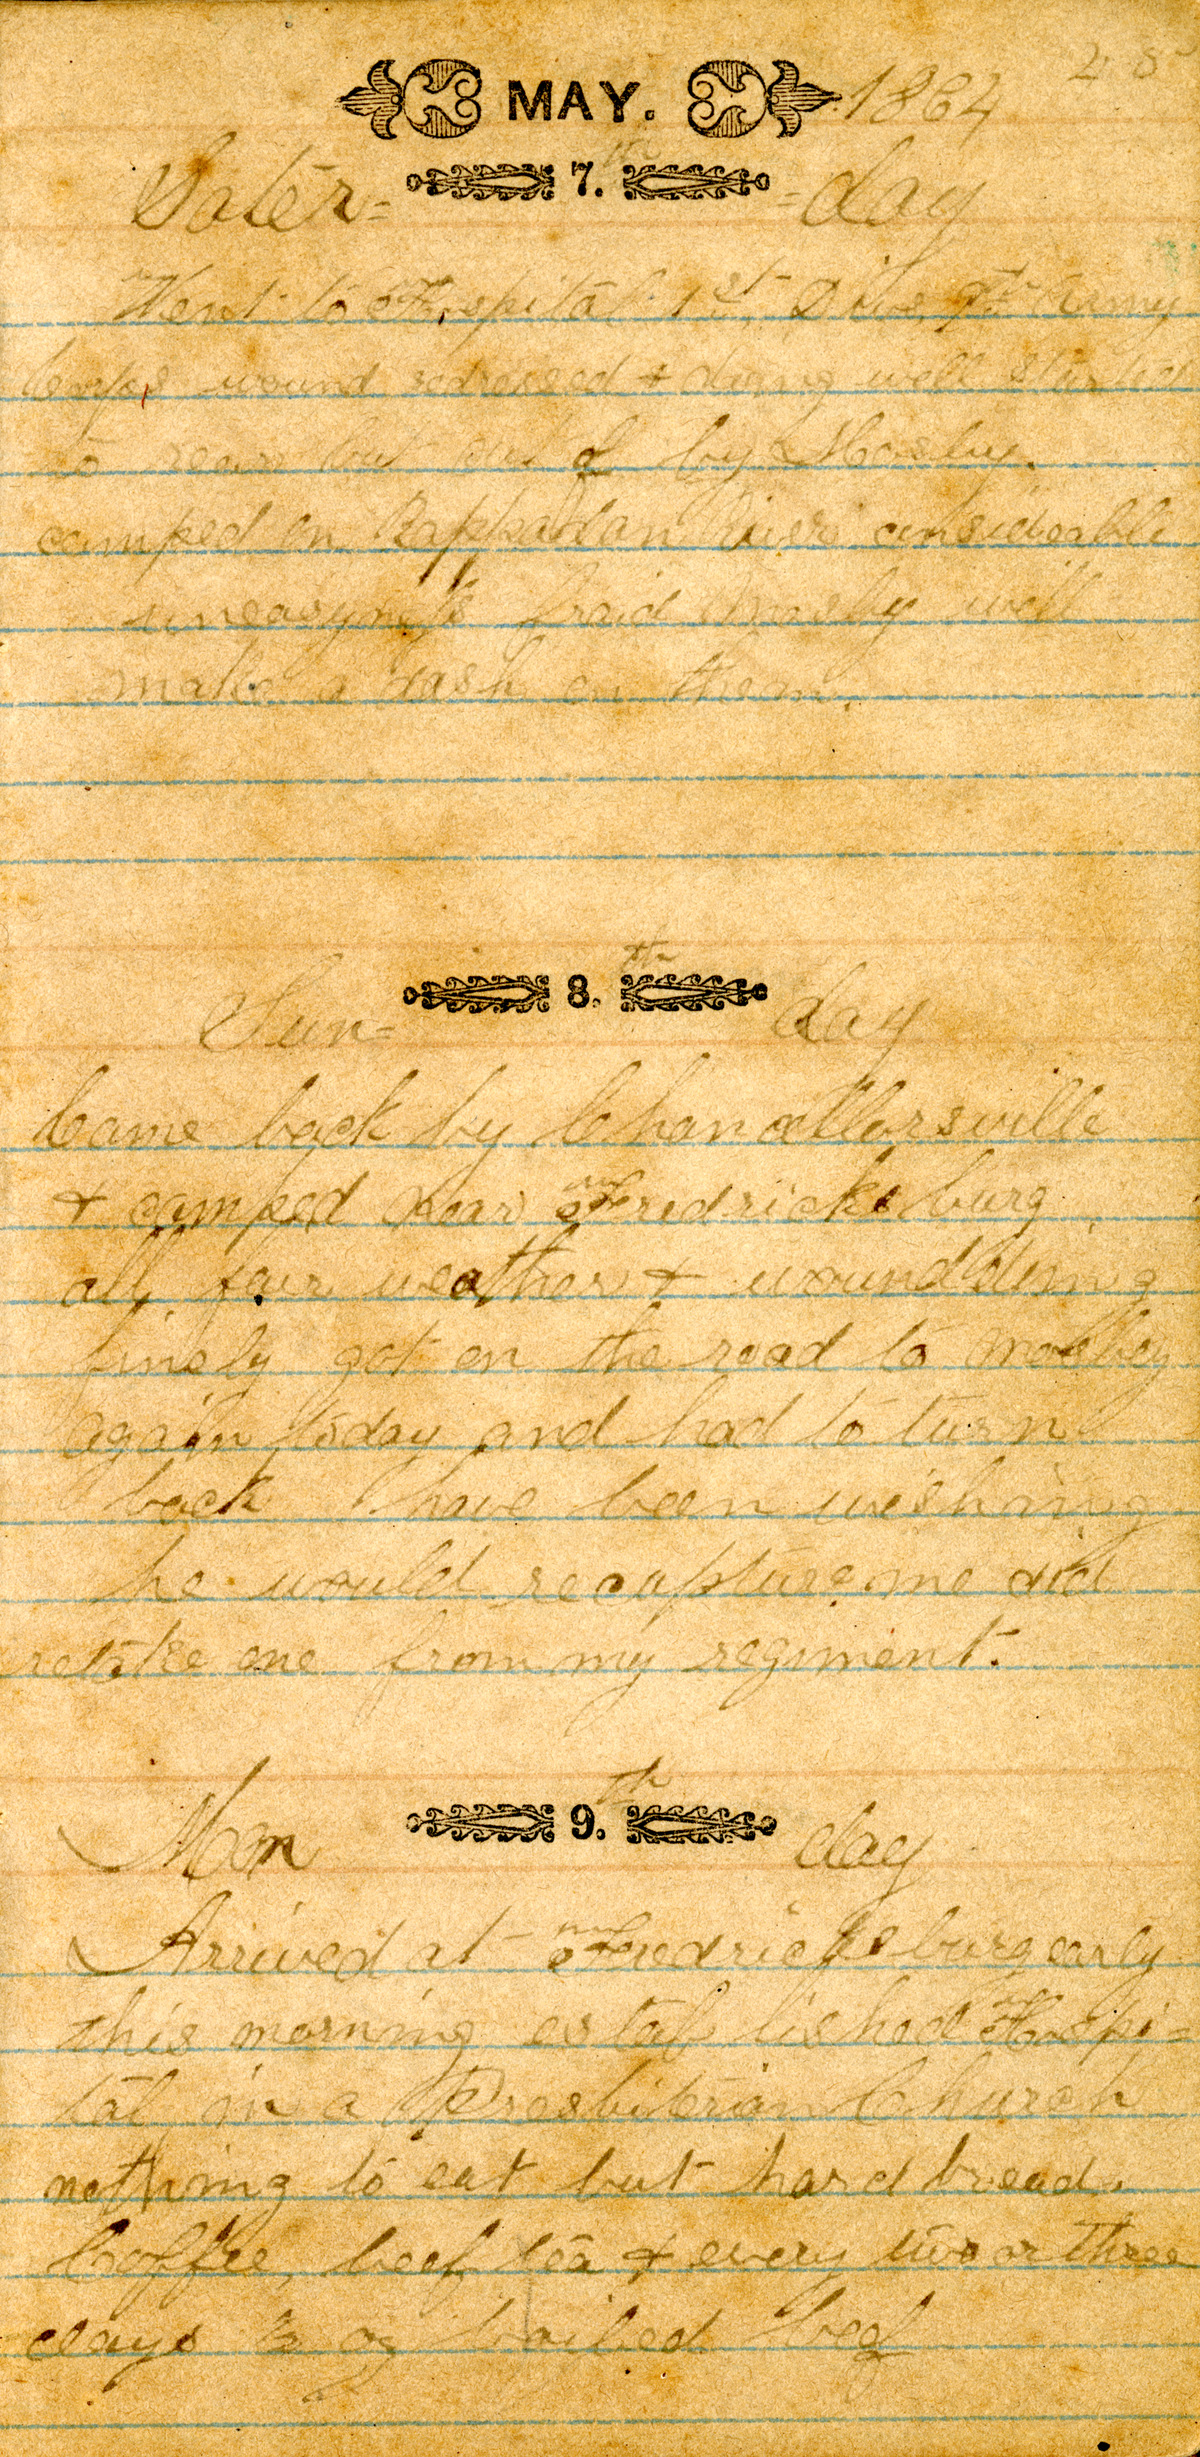 MAY. 1864
Sater= 7.th =day
Went to Hospital 1st Divs, Army
Corps, wound redressed & doing well started
to rear but cut of by Mosby.
camped on Rappadan River considerable
uneasyness fraid Mosby will
make a dash on them.
Sun= 8.th day
Came back by Chancellorsville
& camped near Fredricksburg
all fair weather & wound doing
finely got on the road to Mosby
again today and had to turn
back I have been wishing
he would recapture me did
retake one from my regiment.
Mon 9.th day
Arrived at Fredricksburg early
this morning established Hospi=
tal in a Presbiterian Church
nothing to eat but hard bread.
Coffee, beef tea & every two or three
days ½ oz boiled beef